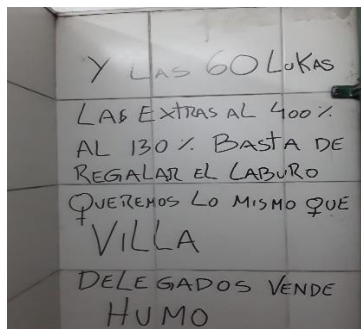 Y LAS 60 LUKAS
LAS EXTRAS AL 400%
AL 130% BASTA DE
REGALAR EL LABURO
QUEREMOS LO MISMO QUE
VILLA
DELEGADOS VENDE
HUMO